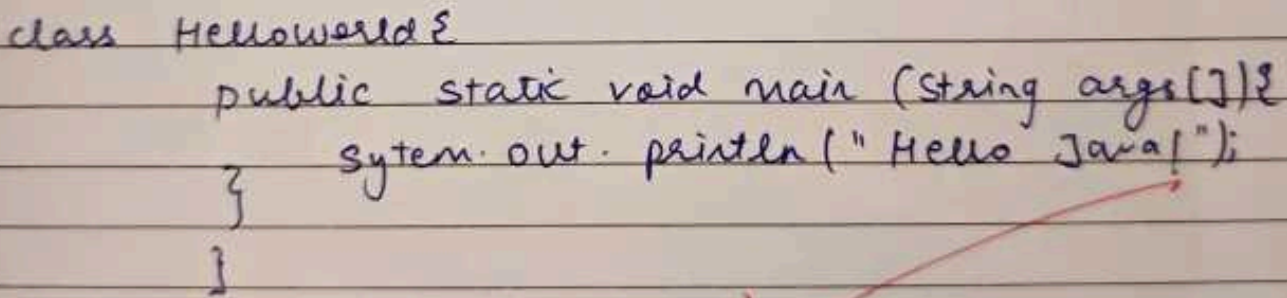 class Helloworld{
public static void main (String args[]){
sytem. out. println (" Hello Java!");
}
}